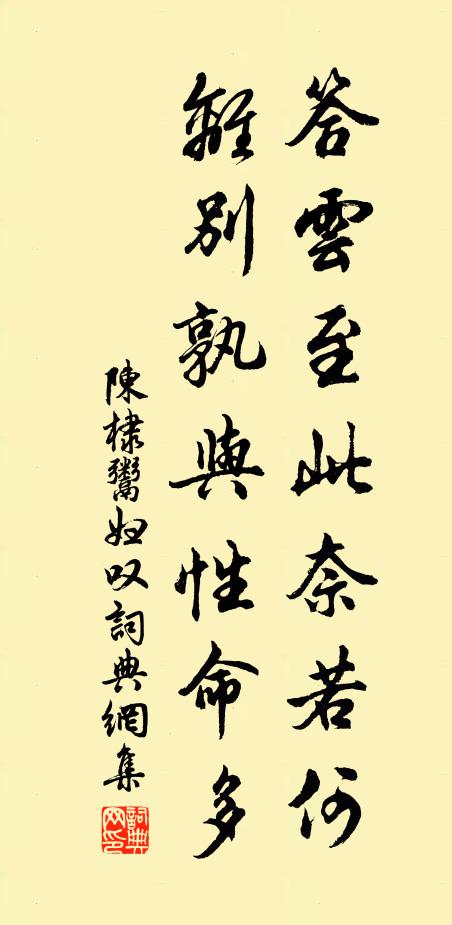 答雲至此奈若何
離別孰與性命多
陳棣鬻婦叹詞典網集
詞典网印